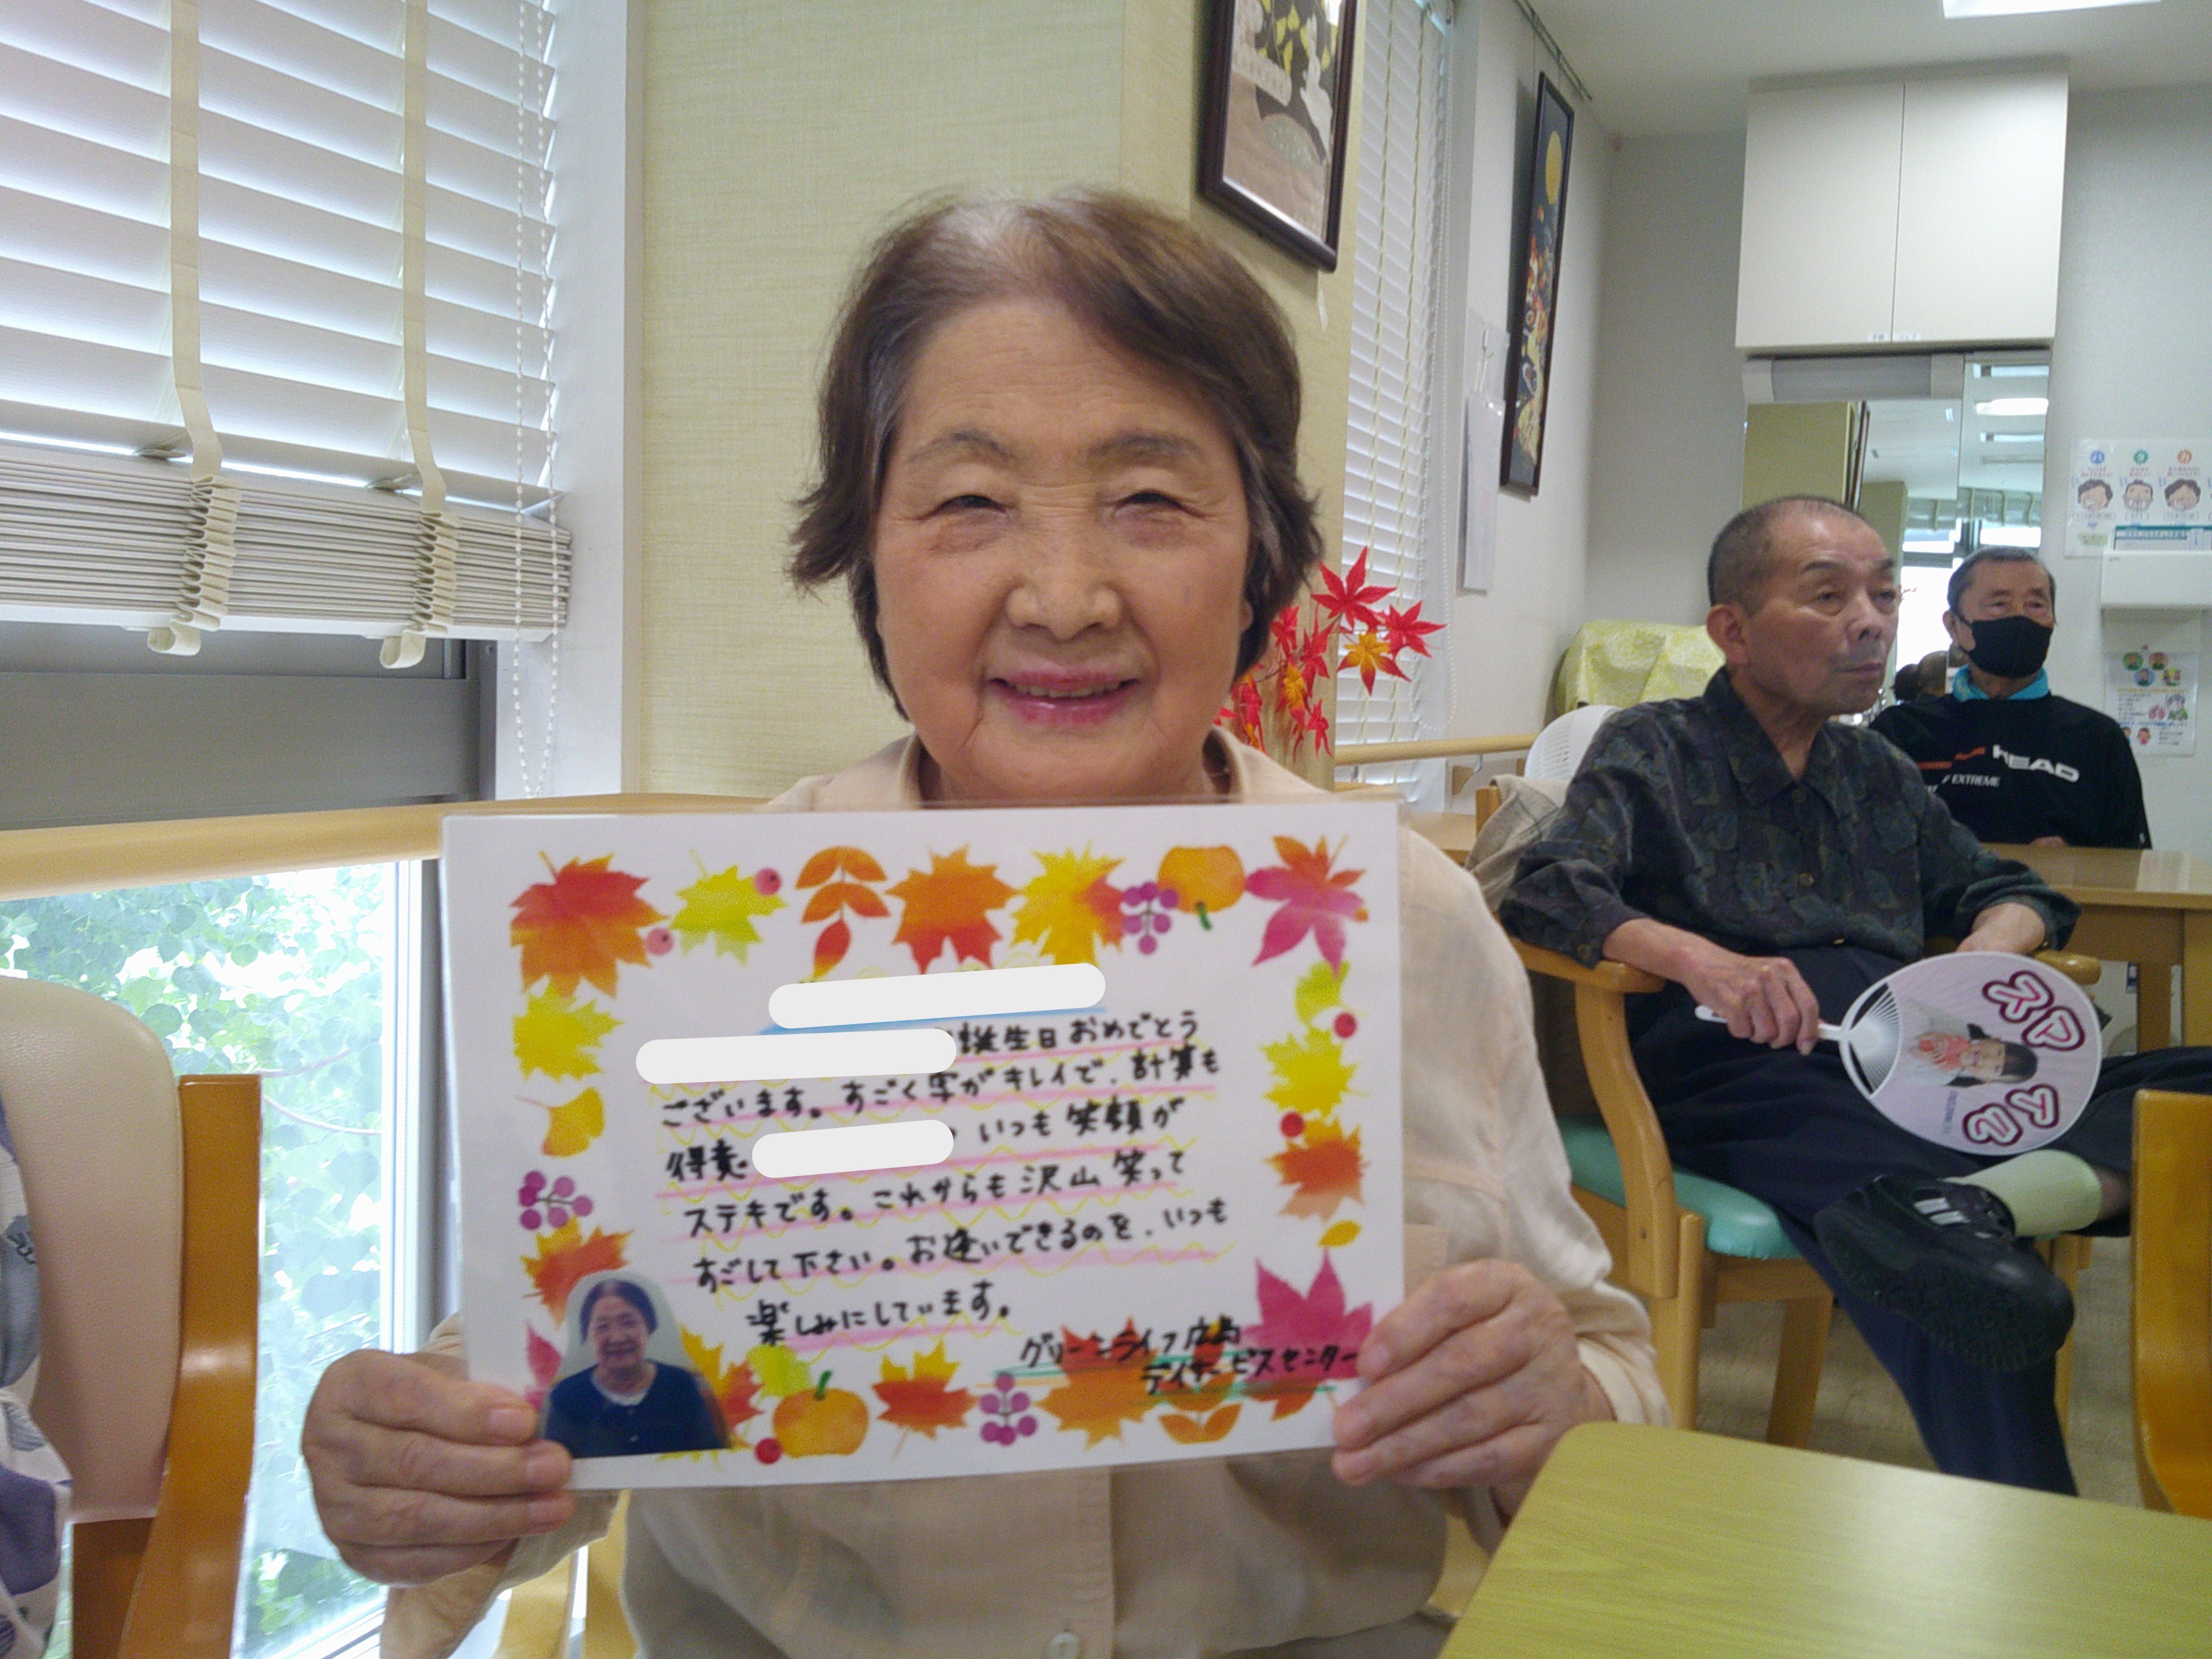 誕生日おめでとう
ございます。すごく字がキレイで、計算も
得意 いつも笑顔が
ステキです。これからも沢山笑って
すごして下さい。お逢いできるのを、いつも
楽しみにしています。
グリーンライフ広島
デイサービスセンター
HEAD
EXTREME
スマ
イル